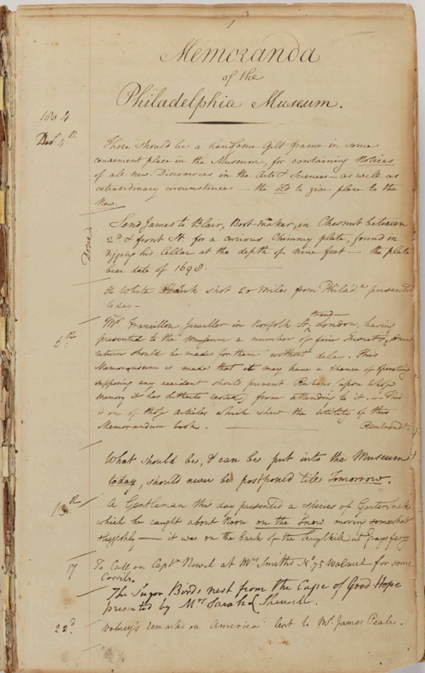 1
Memoranda
of the
Philadelphia Museum.
1804
Decr. 4th
There should be a handsome Gilt frame in some
convenient place in the Museum, for containing Notices
of all new Discoveries in the Arts & Sciences — as well as
extraordinary circumstances — the old to give place to the
New.
Send James to Blair, Boot-maker, in Chesnut between
2d & front St. for a curious Chimney plate, found in
digging his Cellar at the depth of nine feet — the plate
bears date of 1698.
Done
A White Hawk shot 20 Miles from Philada. presented
to-day —
6th.
Mr. Francillon Jeweller in Norfolk St. Strand London, having
presented to the Museum a number of fine Insects, some
return should be made for them without delay. This
Memorandum is made that it may have a chance of
supposing any accident should prevent Rubens, (upon whose
memory it has hitherto rested) from attending to it. — This
is one of those articles which shew the utility of this
Memorandum book. Rembrandt
What should be, & can be put into the Museum
today, should never be postponed till Tomorrow.
13th
A Gentleman this day presented a species of Garter Snake
which he caught about Noon on the Snow moving somewhat
sluggishly — it was on the Bank of the Schuylkill at Grays ferry
17
To Call on Captn. at Mrs. Smiths No. 75 Walnut — for some
Corals.
The Sugar Birds nest from the Cape of Good Hope
presented by Mrs Sarah
22d.
Volney's remarks on America lent to Mr. James Peale.